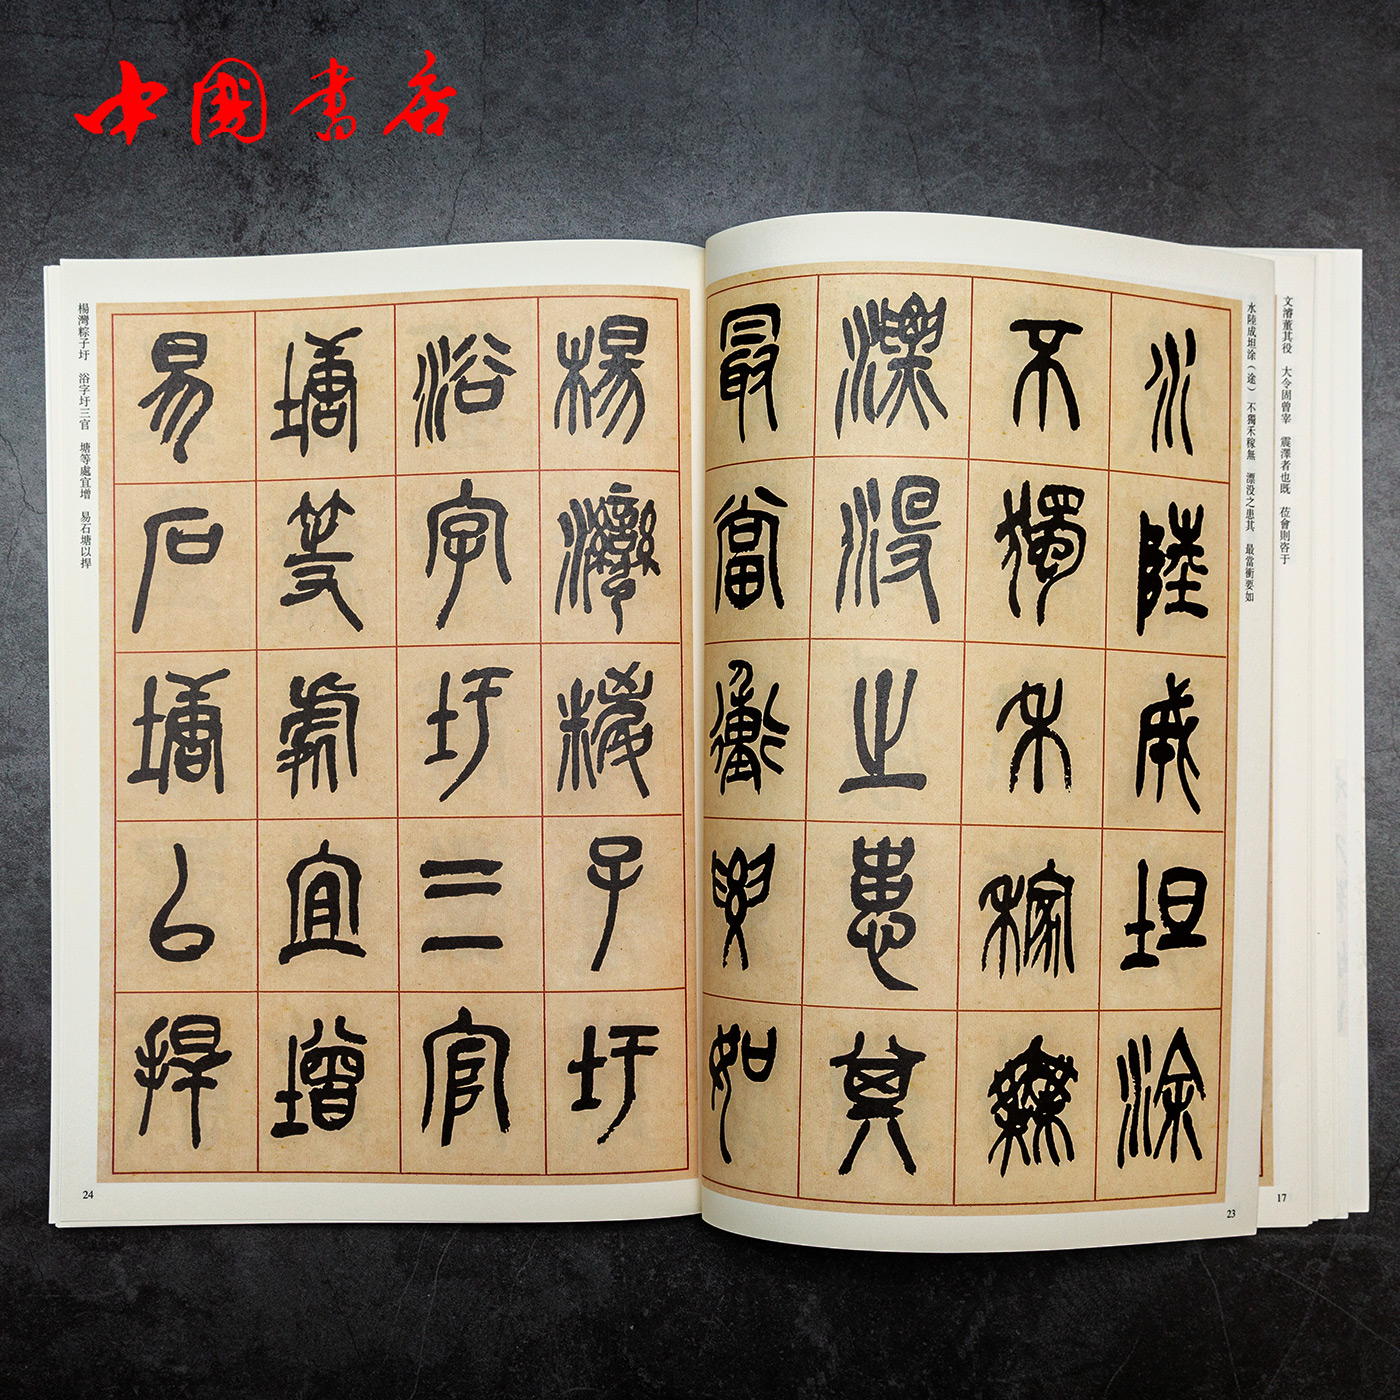 中國書店
文濬董其役　大令固曾宰　震澤者也既　莅會則咨于
17
水陸成坦涂（途）　不獨禾稼無　漂没之患其　最當衝要如
水陸成坦涂
不獨禾稼無
漂没之患其
最當衝要如
23
楊灣粽子圩
浴字圩三官
塘等處宜增
易石塘以捍
楊灣粽子圩　浴字圩三官　塘等處宜增　易石塘以捍
24